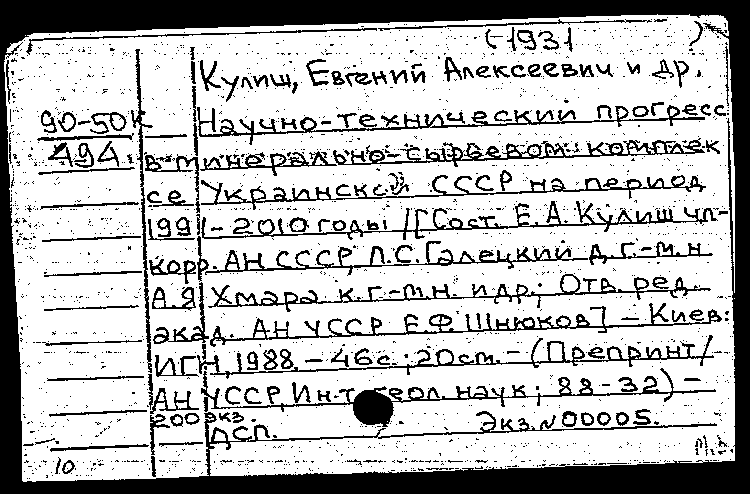 (-1931 )
Кулиш, Евгений Алексеевич и др.
90-50К Научно-технический прогресс
494. в минерально-сырьевом комплек
се Украинской СССР на период
1991-2010 годы /[Сост. Е.А. Кулиш чл-
корр. АН СССР, Л.С. Галецкий д.г.-м.н
А.Я Хмара к.г-м.н. и др.; Отв. ред.
акад. АН УССР Е.Ф. Шнюков] - Киев:
ИГН, 1988. - 46с; 20см. - (Препринт/
АН УССР, Ин-т геол. наук; 88-32) -
200 экз.
ДСП. Экз. N 00005.
10